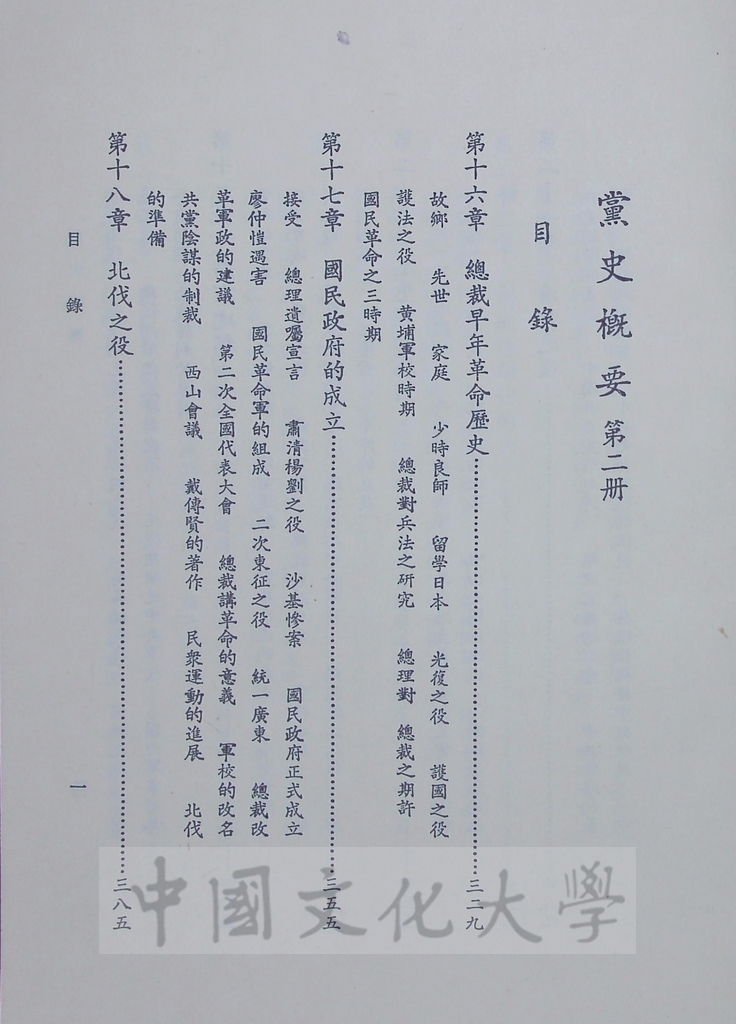 黨史概要 第二册
目錄
第十六章 總裁早年革命歷史……三二九
故鄉 先世 家庭 少時良師 留學日本 光復之役 護國之役
護法之役 黃埔軍校時期 總裁對兵法之研究 總理對 總裁之期許
國民革命之三時期
第十七章 國民政府的成立……三五五
接受 總理遺囑宣言 肅清楊劉之役 沙基慘案 國民政府正式成立
廖仲愷遇害 國民革命軍的組成 二次東征之役 統一廣東 總裁改
革軍政的建議 第二次全國代表大會 總裁講革命的意義 軍校的改名
共黨陰謀的制裁 西山會議 戴傳賢的著作 民衆運動的進展 北伐
的準備
第十八章 北伐之役……三八五
目錄 一
中國文化大學